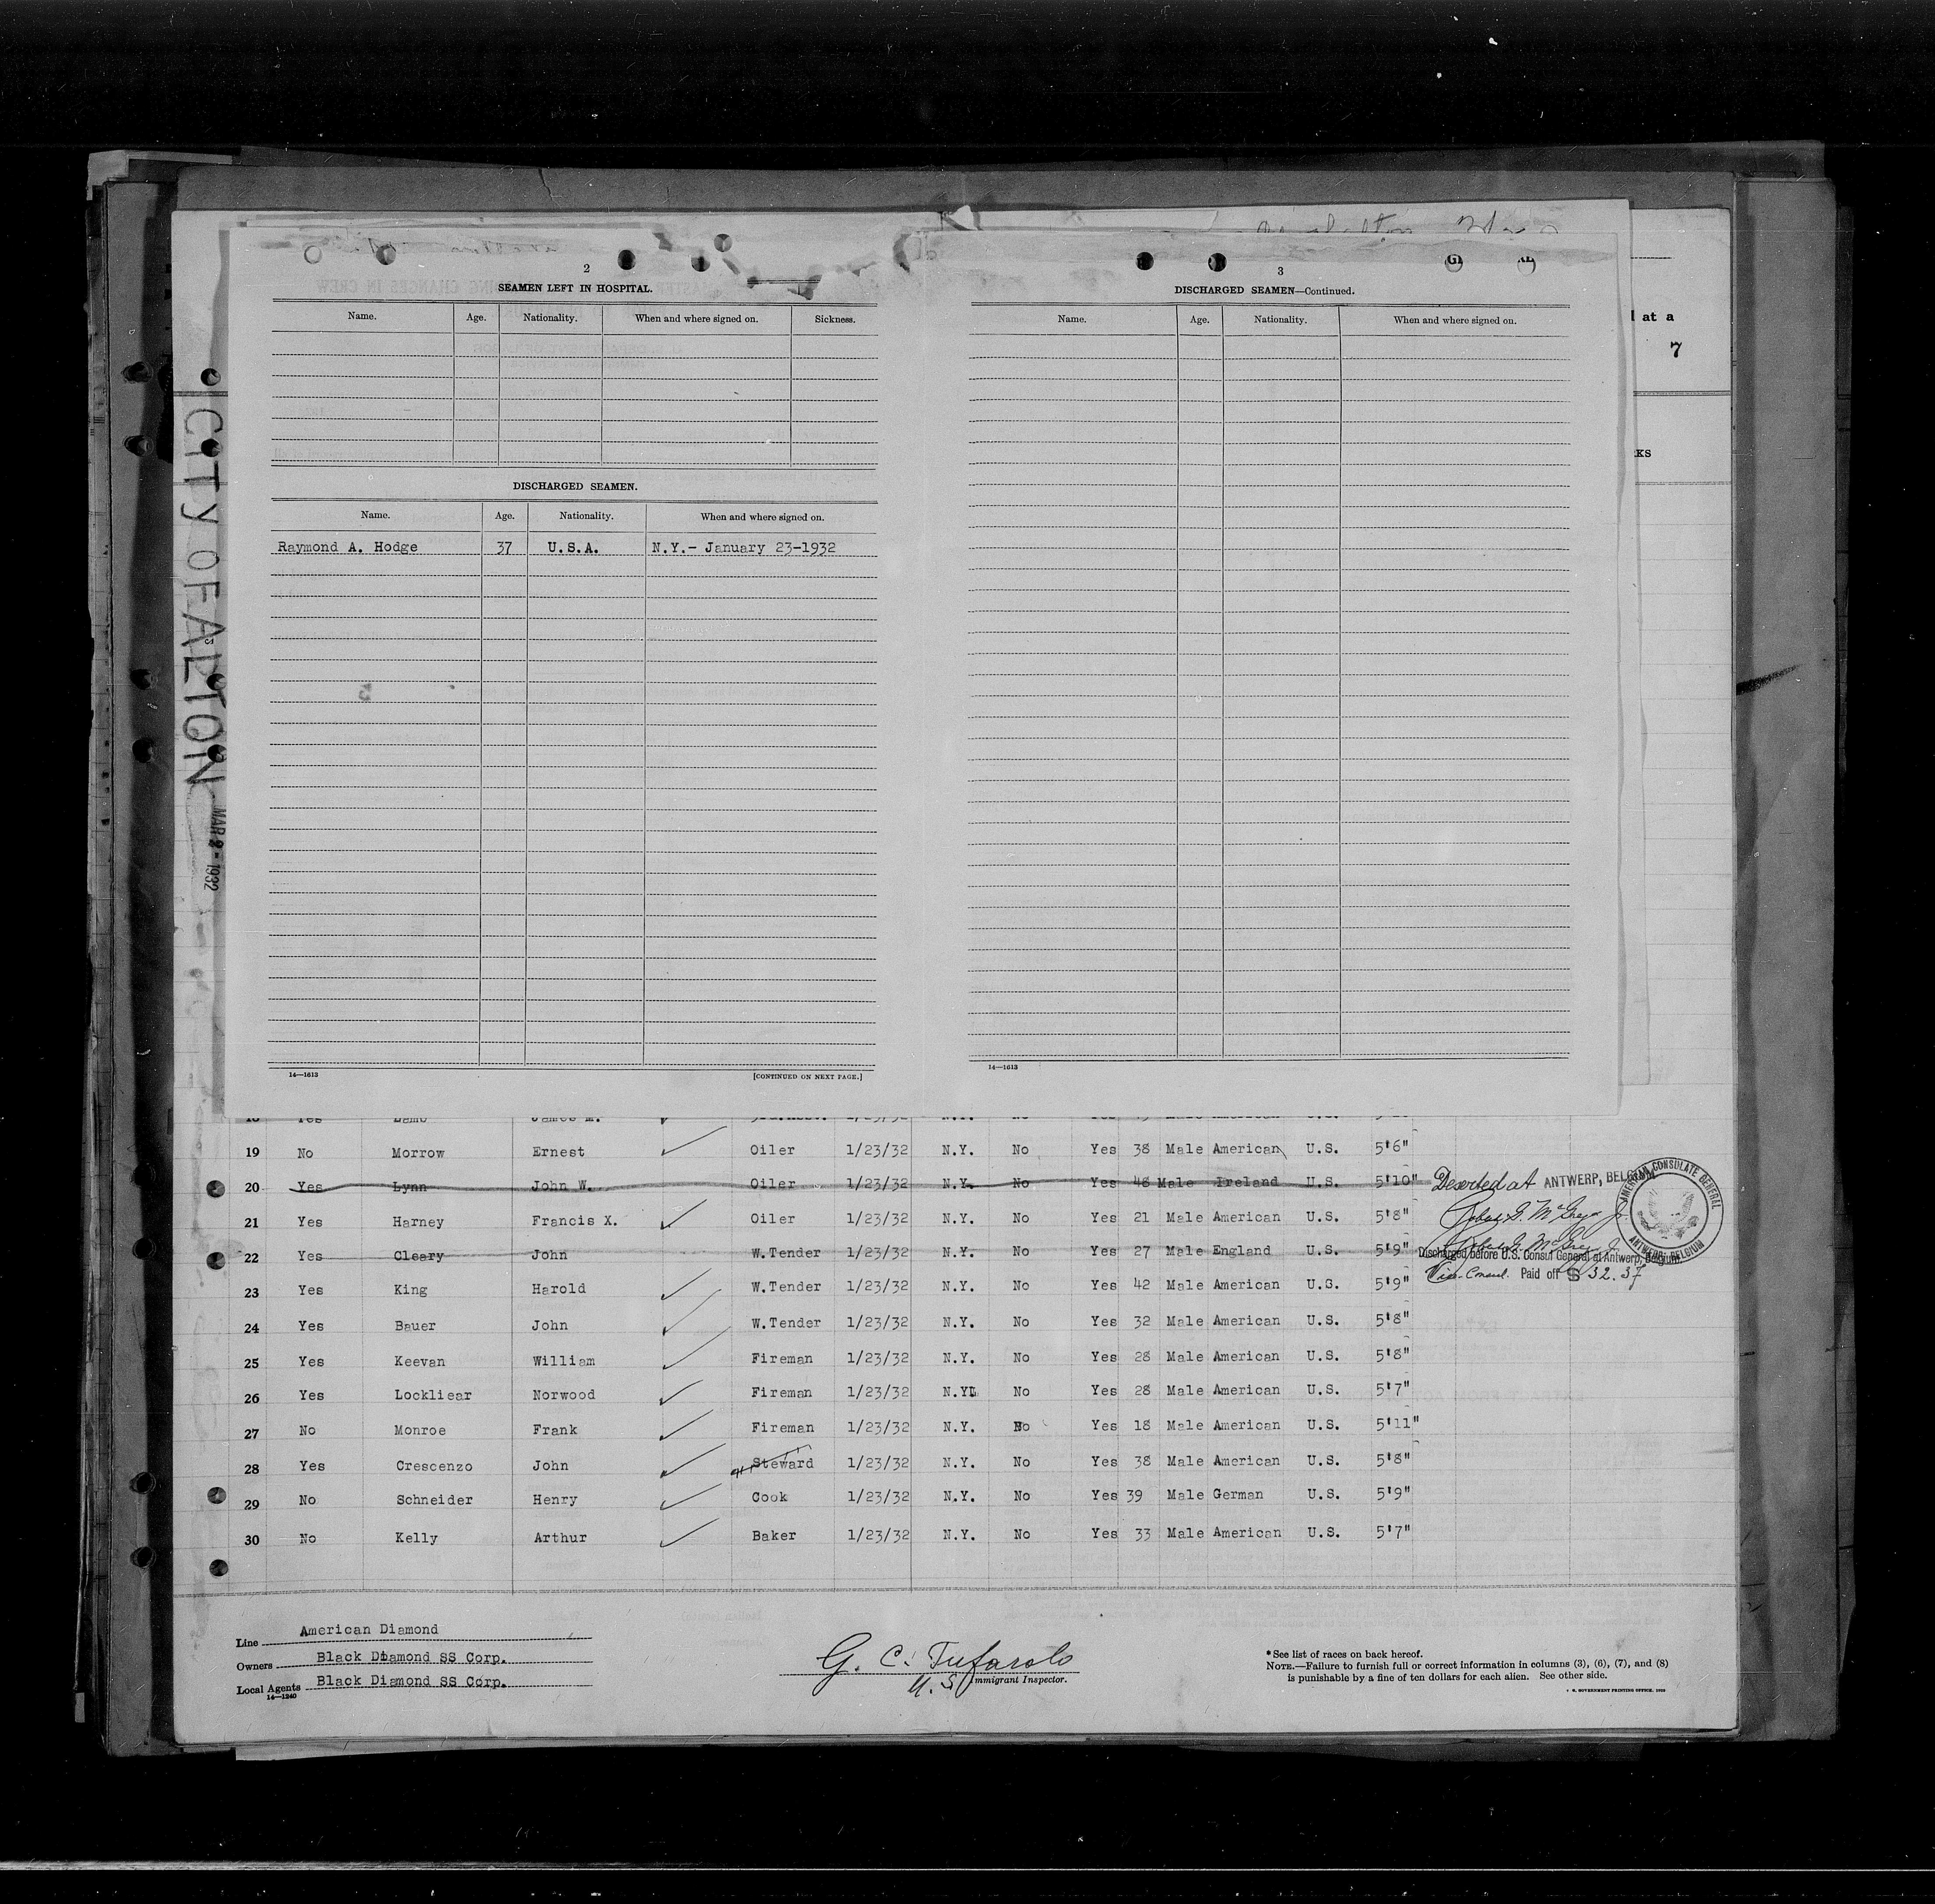 CITY OF ALTON
MAR 2 - 1932
l at a
7
RKS
2
SEAMEN LEFT IN HOSPITAL.
Name. Age. Nationality. When and where signed on. Sickness.
DISCHARGED SEAMEN.
Name. Age. Nationality. When and where signed on.
Raymond A. Hodge 37 U.S.A. N.Y.- January 23-1932
14—1613 [CONTINUED ON NEXT PAGE.]
3
DISCHARGED SEAMEN—Continued.
Name. Age. Nationality. When and where signed on.
14—1613
19 No Morrow Ernest Oiler 1/23/32 N.Y. No Yes 38 Male American U.S. 5'6"
20 Yes Lynn John W. Oiler 1/23/32 N.Y. No Yes 48 Male Ireland U.S. 5'10" Deserted at ANTWERP, BELGIUM
21 Yes Harney Francis X. Oiler 1/23/32 N.Y. No Yes 21 Male American U.S. 5'8"
22 Yes Cleary John W.Tender 1/23/32 N.Y. No Yes 27 Male England U.S. 5'9" Discharged before U.S. Consul General at Antwerp, Belgium.
Vice-Consul. Paid off $ 32.37
AMERICAN CONSULATE GENERAL
ANTWERP, BELGIUM
23 Yes King Harold W.Tender 1/23/32 N.Y. No Yes 42 Male American U.S. 5'9"
24 Yes Bauer John W.Tender 1/23/32 N.Y. No Yes 32 Male American U.S. 5'8"
25 Yes Keevan William Fireman 1/23/32 N.Y. No Yes 28 Male American U.S. 5'8"
26 Yes Lockliear Norwood Fireman 1/23/32 N.Y. No Yes 28 Male American U.S. 5'7"
27 No Monroe Frank Fireman 1/23/32 N.Y. No Yes 18 Male American U.S. 5'11"
28 Yes Crescenzo John Steward 1/23/32 N.Y. No Yes 38 Male American U.S. 5'8"
29 No Schneider Henry Cook 1/23/32 N.Y. No Yes 39 Male German U.S. 5'9"
30 No Kelly Arthur Baker 1/23/32 N.Y. No Yes 33 Male American U.S. 5'7"
Line American Diamond
Owners Black Diamond SS Corp.
Local Agents Black Diamond SS Corp.
14—1240
G. C. Tufarolo
U.S. Immigrant Inspector.
* See list of races on back hereof.
NOTE.—Failure to furnish full or correct information in columns (3), (6), (7), and (8)
is punishable by a fine of ten dollars for each alien. See other side.